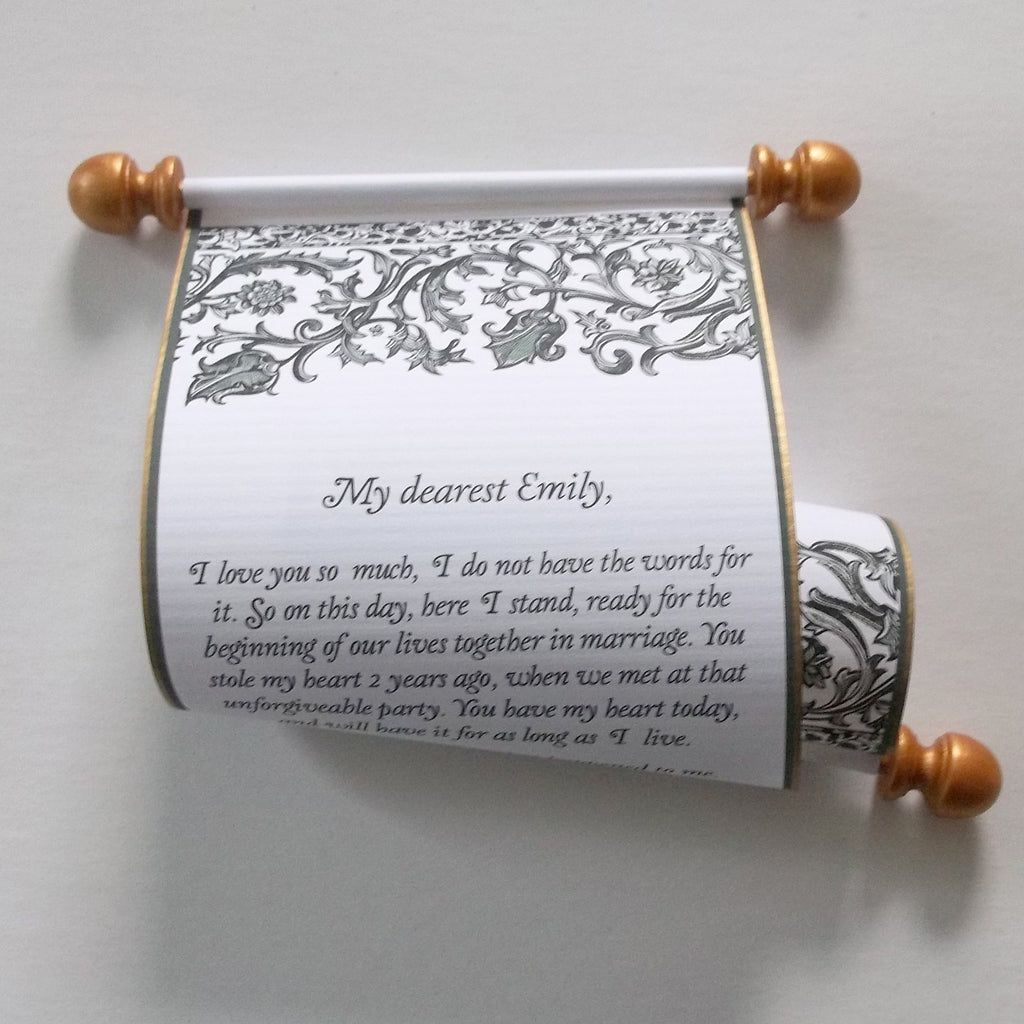 My dearest Emily,
I love you so much, I do not have the words for
it. So on this day, here I stand, ready for the
beginning of our lives together in marriage. You
stole my heart 2 years ago, when we met at that
unforgiveable party. You have my heart today,
and will have it for as long as I live.
to me